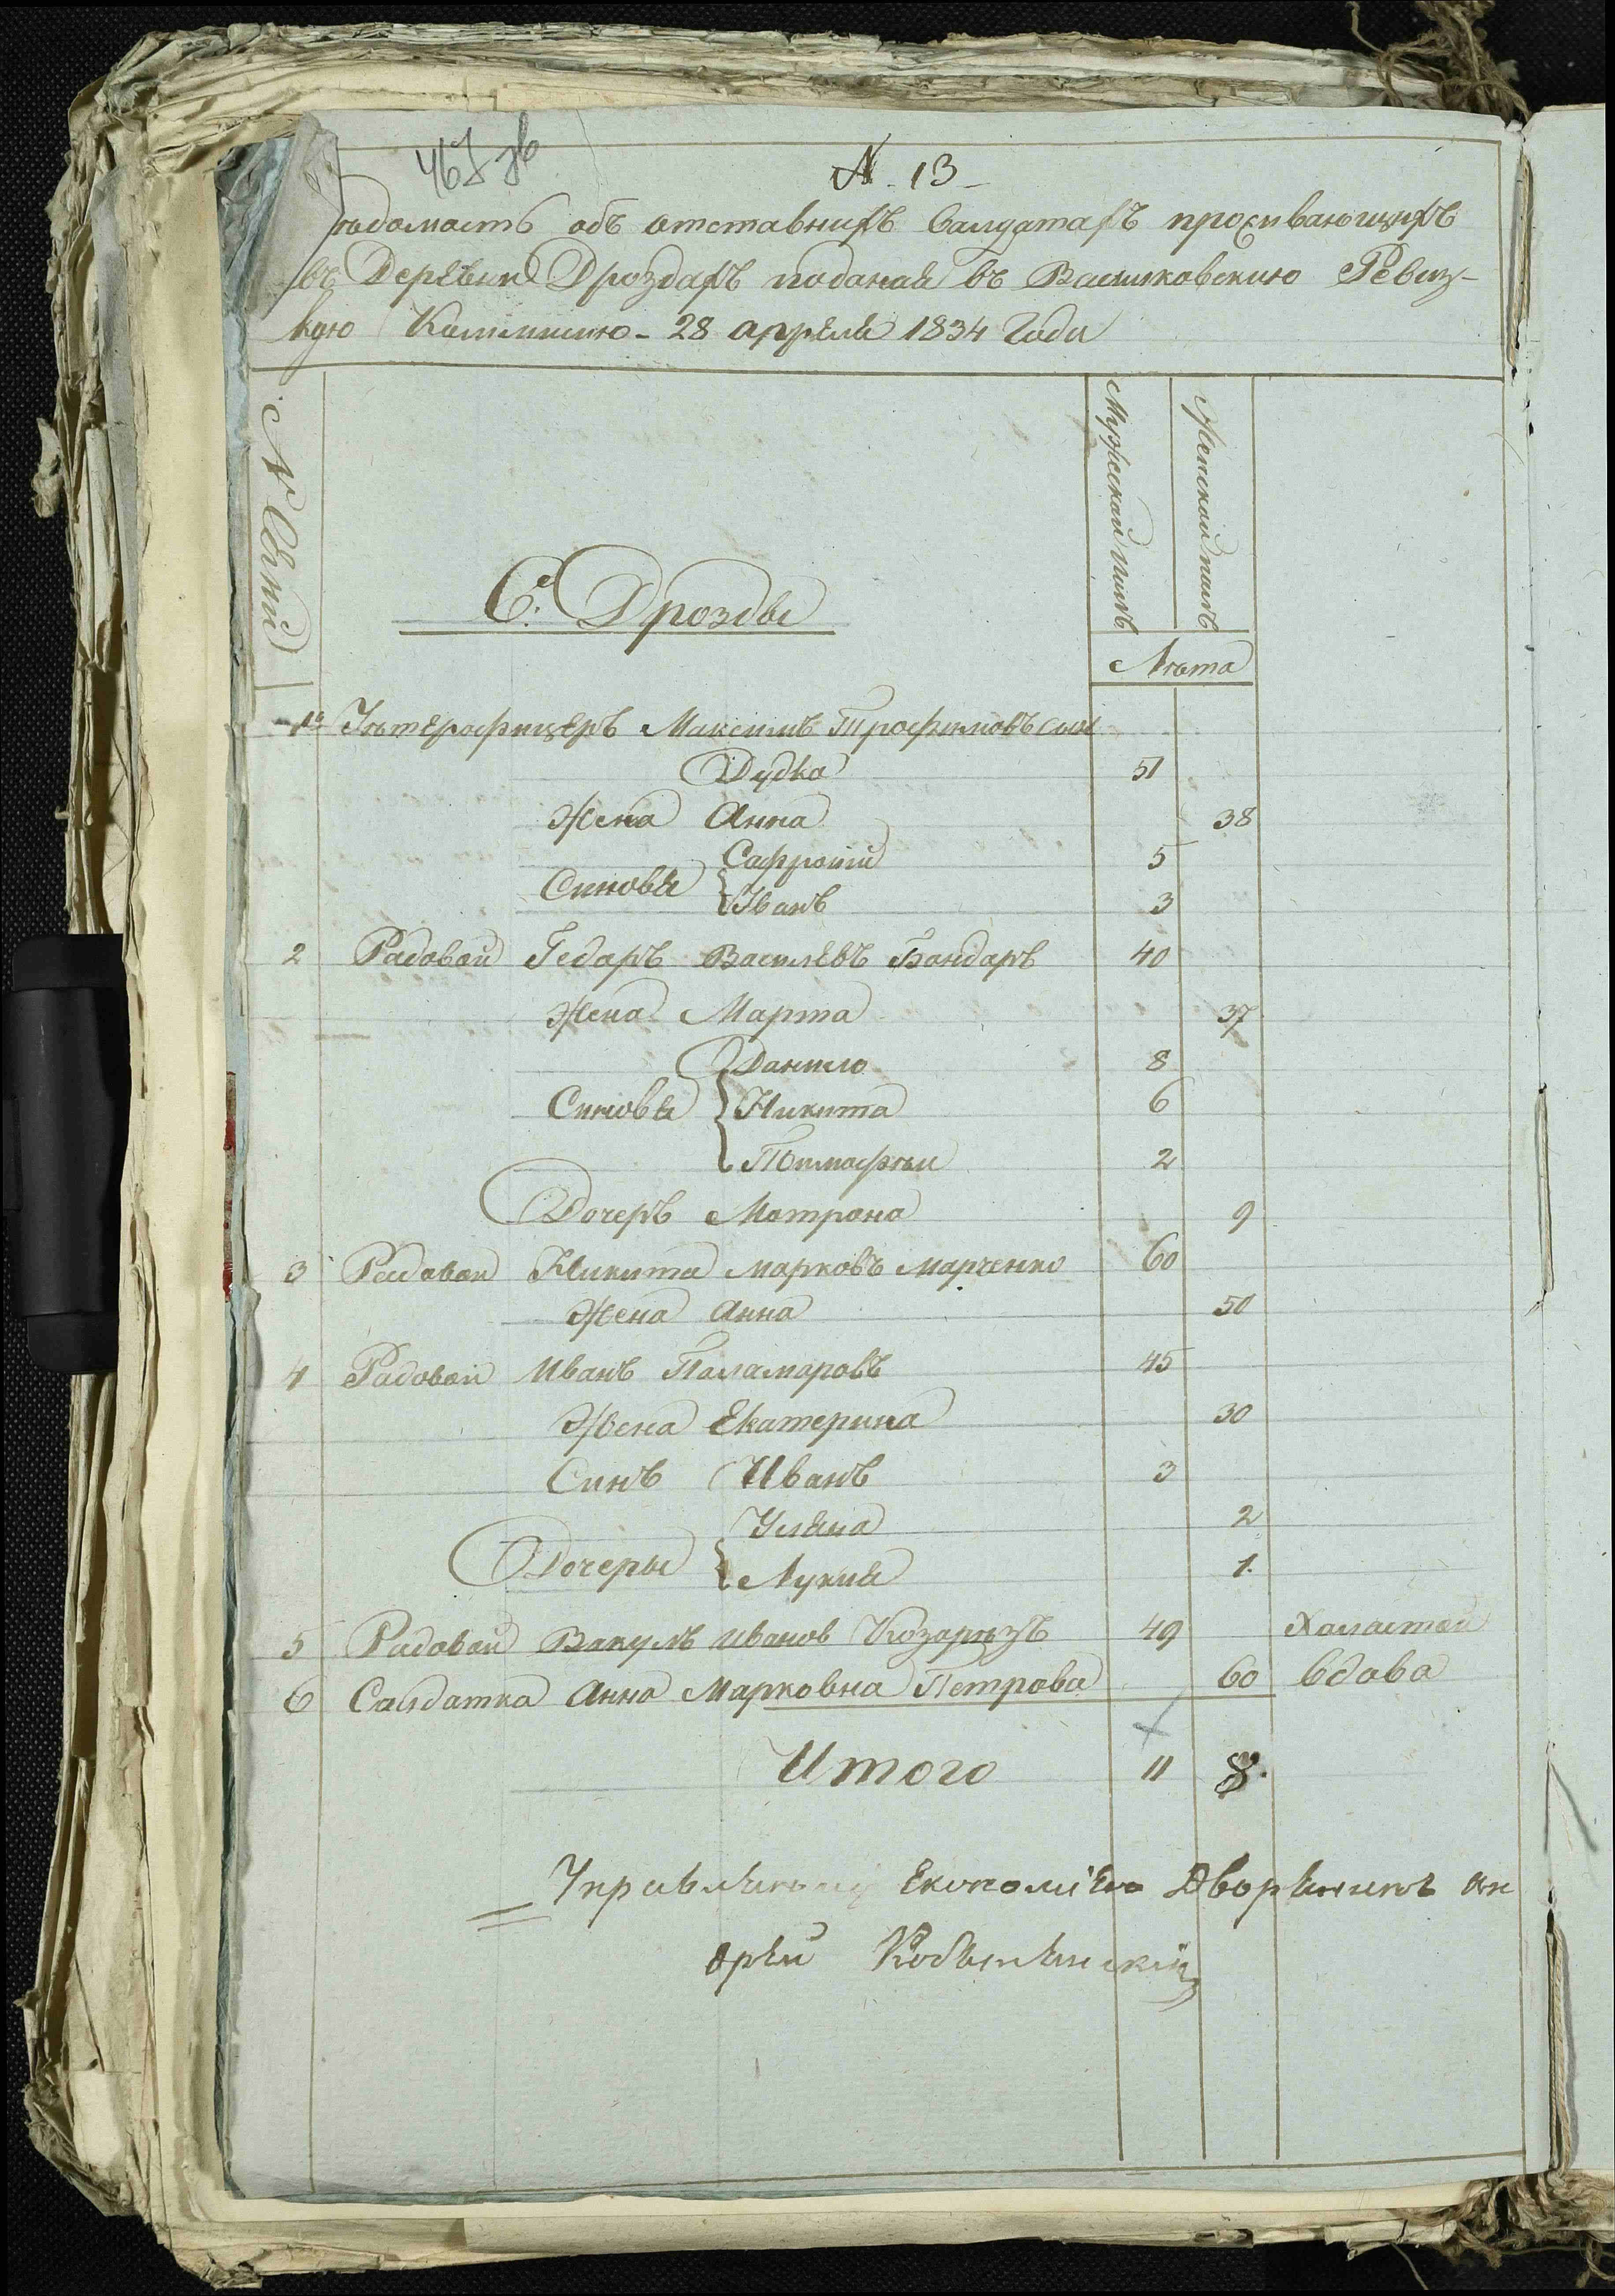 467 зв
N. 13
Ведомасть объ отставнихъ Салдатахъ проживающихъ
въ Деревни Дроздахъ поданая въ Васильковскую Ревиз-
кую Коммисию - 28 апреля 1834 Года
N Семей
Мужеской полъ
Женской полъ
Се. Дрозды
Лѣта
1й Унтерофицеръ Максимъ Трофимовъ сын
Дудка 51
Жена Анна 38
Сафроний 5
Синовья
Иванъ 3
2 Радовой Федаръ Василевъ Бондаръ 40
Жена Марта 37
Данило 8
Синовья Никита 6
Тимофѣи 2
Дочеръ Мотрона 9
3 Радовой Никита Марковъ Марченко 60
Жена Анна 50
4 Радовой Иванъ Паламаровъ 45
Жена Екатерина 30
Синъ Иванъ 3
Уляна 2
Дочеры
Лукия 1.
5 Радовой Вакулъ Иванов Козарѣзъ 49 Халастой
6 Салдатка Анна Марковна Петрова 60 вдова
Итого 11 8.
Управляющий Економиею Дворянинъ Ан
дрей Кобылянский